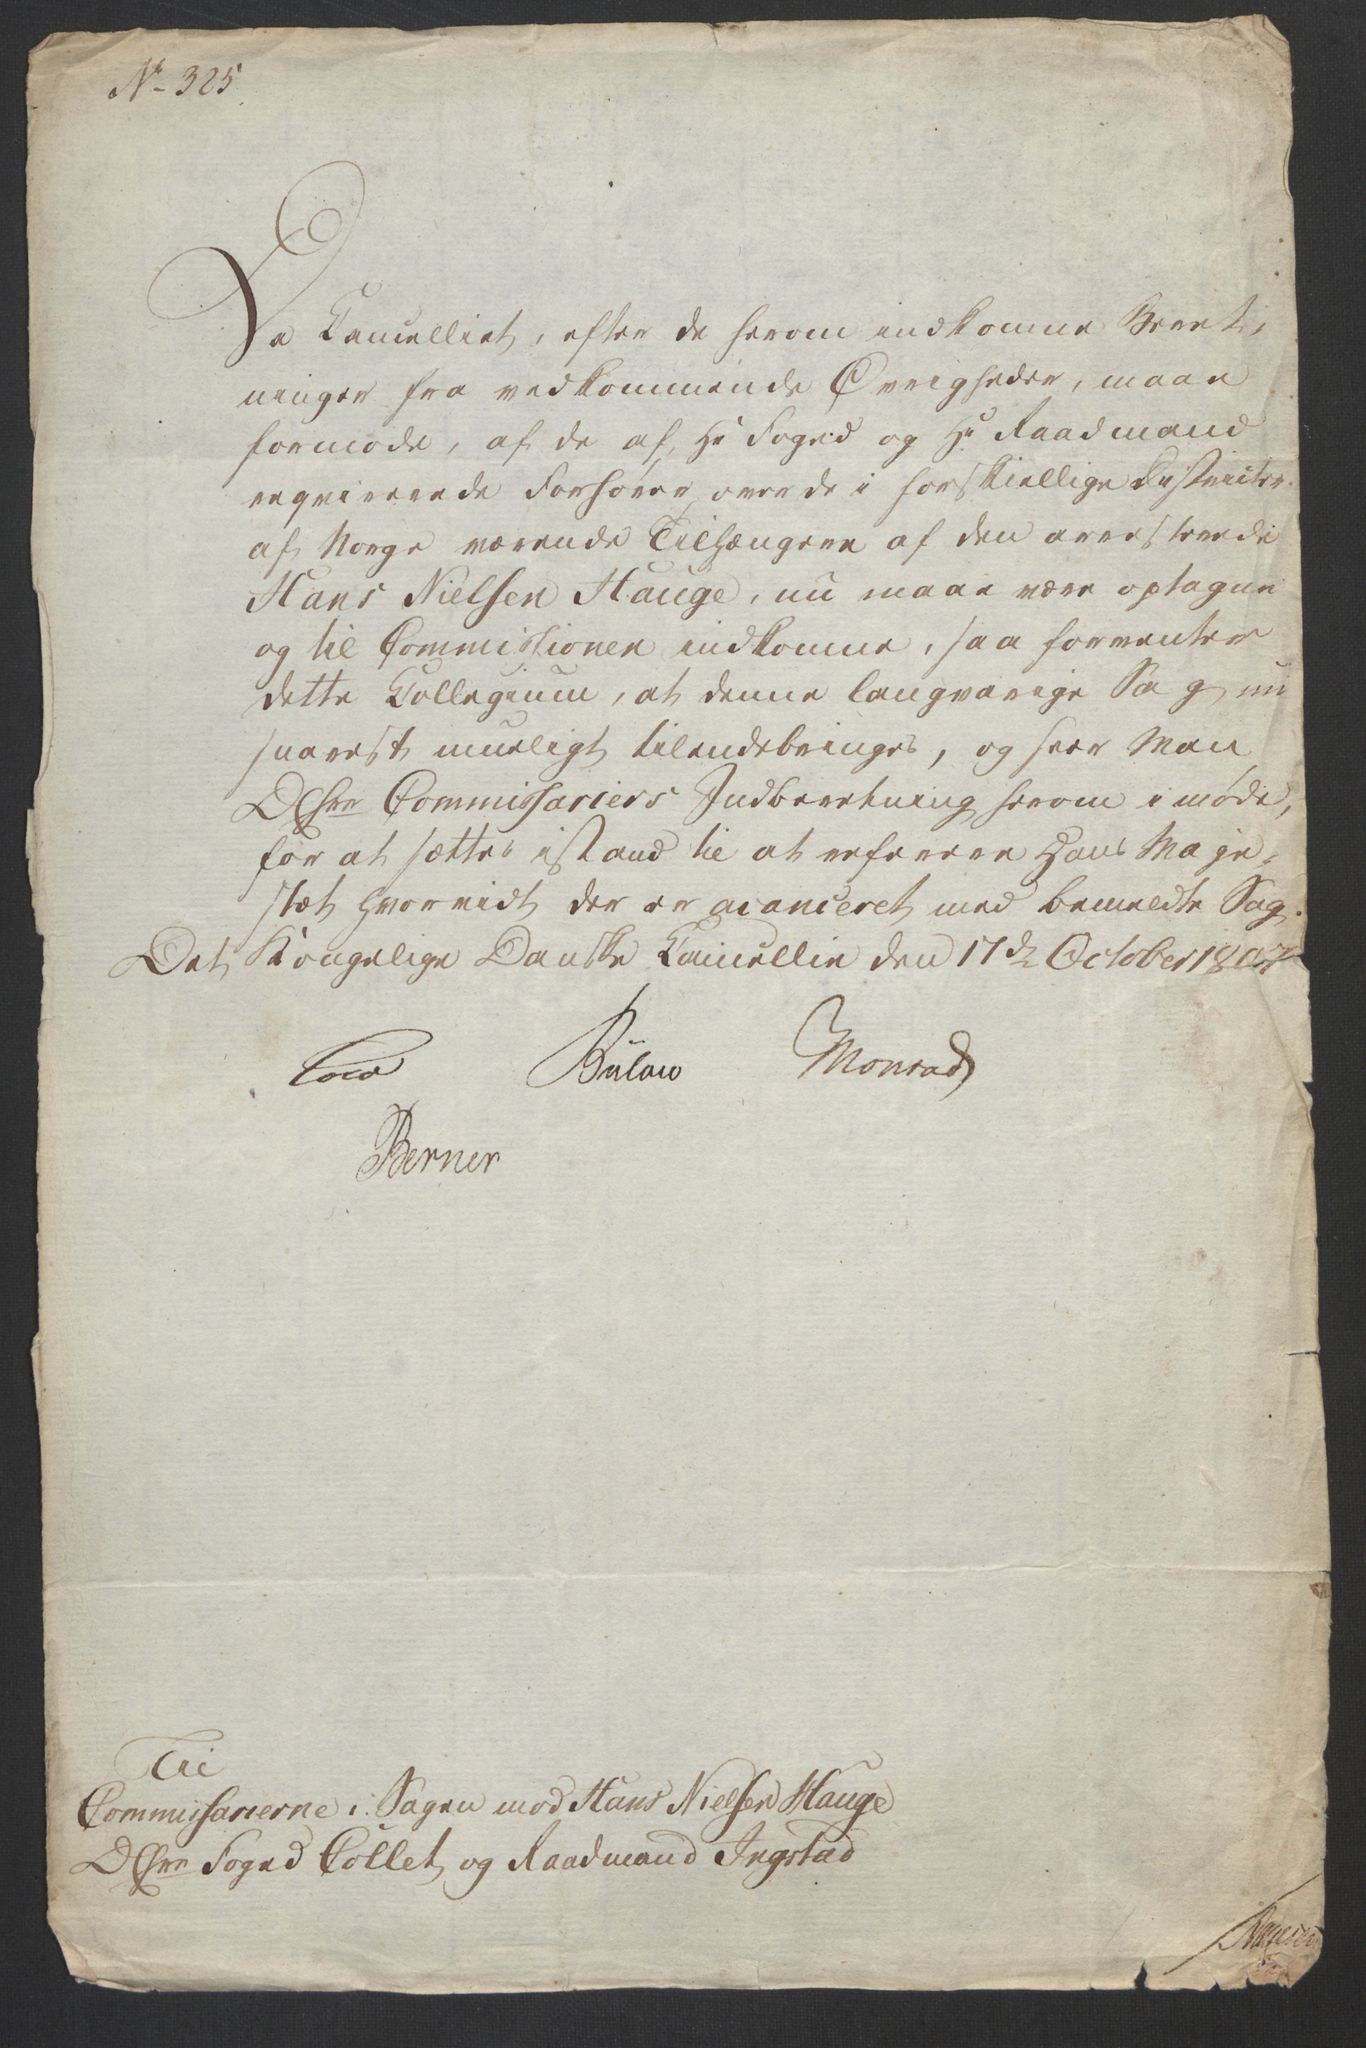 No 325
Da Cancelliet, efter de herom indkomne Beret-
ninger fra vedkommende Øvrigheder, maae
formode, at de af Hr Foged og Hr Raadmand
reqvirerede Forhører over de i forskiellige Districter
af Norge værende Tilhængere af den arresterede
Hans Nielsen Hauge, nu maae være optagne
og til Commissionen indkomne, saa forventer
dette Collegium, at denne langvarige Sag nu
snarest mueligt tilendebringes, og seer Man
DHrr Commissariers Indberetning herom i møde,
for at sættes istand til at referere Hans Maje-
stæt hvorvidt der er avanceret med bemeldte Sag.
Det Kongelige Danske Cancellie den 17de October 1807
Cold Bülow Monrad
Berner
Til
Commissarierne i Sagen mod Hans Nielsen Hauge
DHrr Foged Collet og Raadmand Ingstad